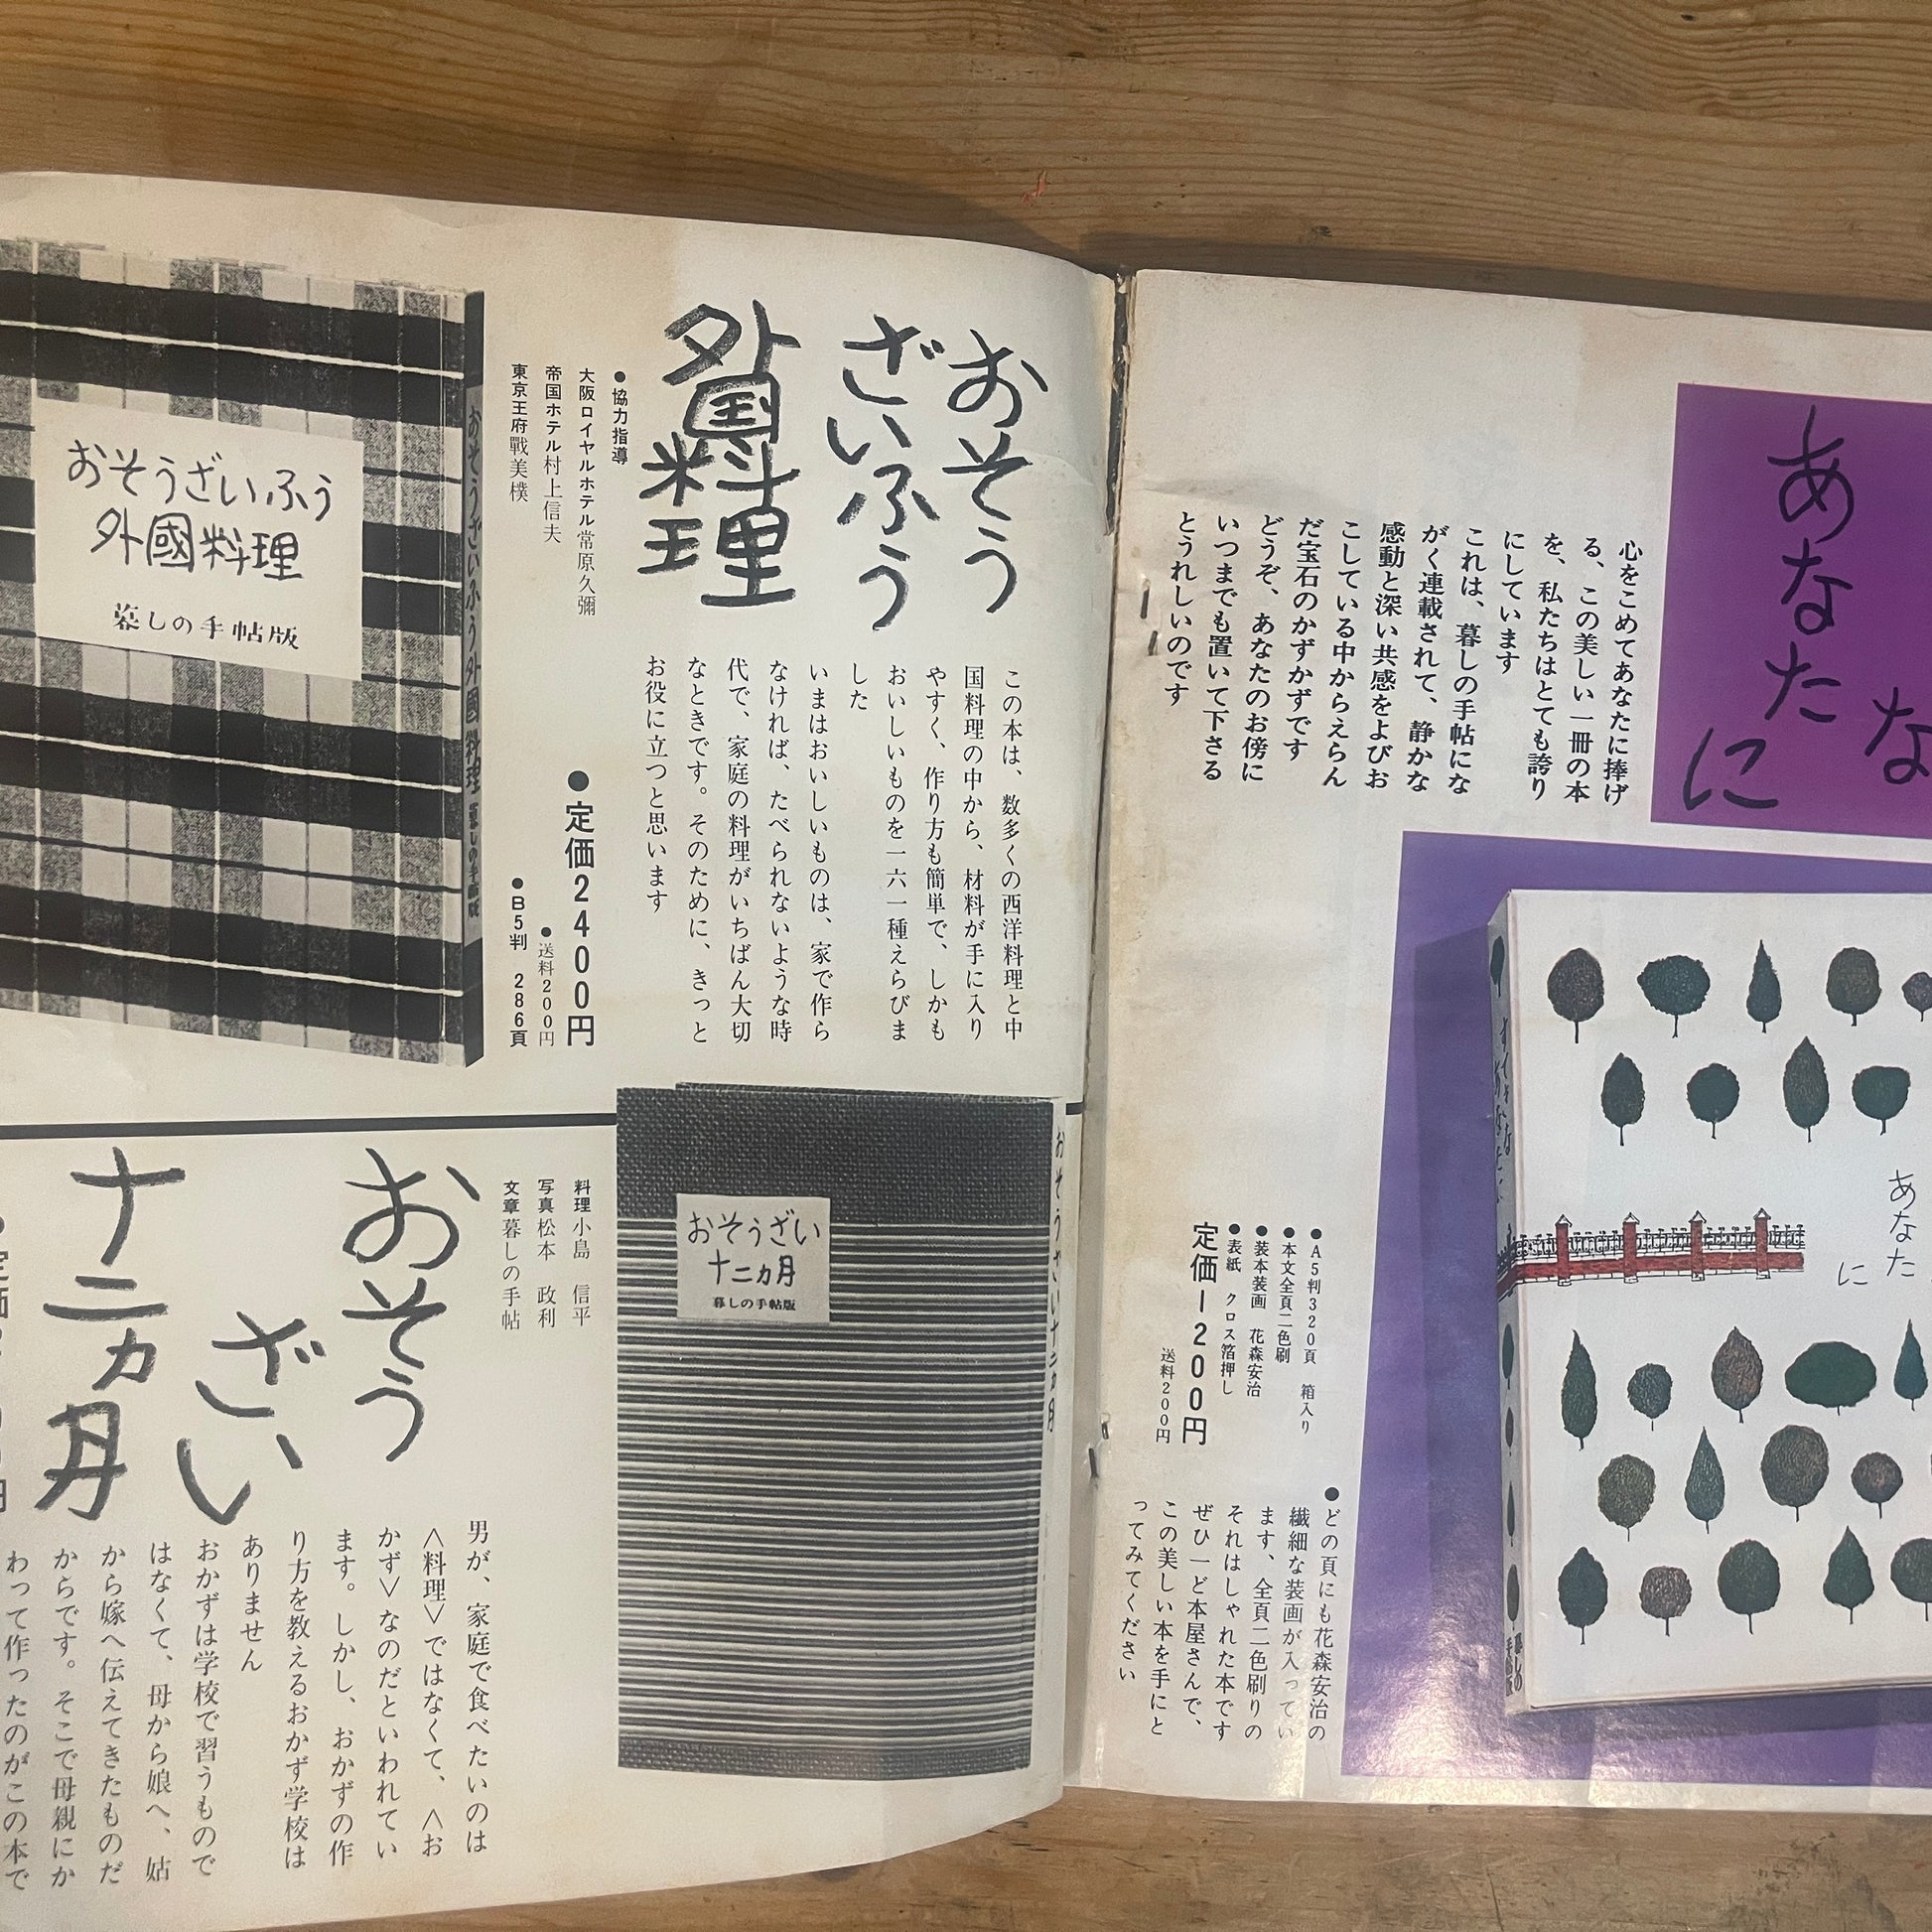 あなたに
な
心をこめてあなたに捧げ
る、この美しい一冊の本
を、私たちはとても誇り
にしています
これは、暮しの手帖にな
がく連載されて、静かな
感動と深い共感をよびお
こしている中からえらん
だ宝石のかずかずです
どうぞ、あなたのお傍に
いつまでも置いて下さる
とうれしいのです
あなた
に
すてきな
あなたに
暮しの
手帖版
●A5判320頁 箱入り
●本文全頁二色刷
●装本装画 花森安治
●表紙 クロス箔押し
定価1200円
送料200円
●どの頁にも花森安治の
繊細な装画が入ってい
ます、全頁二色刷りの
それはしゃれた本です
ぜひ一ど本屋さんで、
この美しい本を手にと
ってみてください
おそう
ざいふう
外国料理
●協力指導
大阪ロイヤルホテル常原久彌
帝国ホテル村上信夫
東京王府戰美樸
この本は、数多くの西洋料理と中
国料理の中から、材料が手に入り
やすく、作り方も簡単で、しかも
おいしいものを一六一種えらびま
した
いまはおいしいものは、家で作ら
なければ、たべられないような時
代で、家庭の料理がいちばん大切
なときです。そのために、きっと
お役に立つと思います
●定価2400円
●送料200円
●B5判 286頁
おそうざいふう外國料理 暮しの手帖版
おそうざいふう
外國料理
暮しの手帖版
おそうざい十二ヵ月
おそうざい
十二ヵ月
暮しの手帖版
料理 小島 信平
写真 松本 政利
文章 暮しの手帖
おそう
ざい
十二ヵ月
男が、家庭で食べたいのは
＜料理＞ではなくて、＜お
かず＞なのだといわれてい
ます。しかし、おかずの作
り方を教えるおかず学校は
ありません
おかずは学校で習うもので
はなくて、母から娘へ、姑
から嫁へ伝えてきたものだ
からです。そこで母親にか
わって作ったのがこの本で